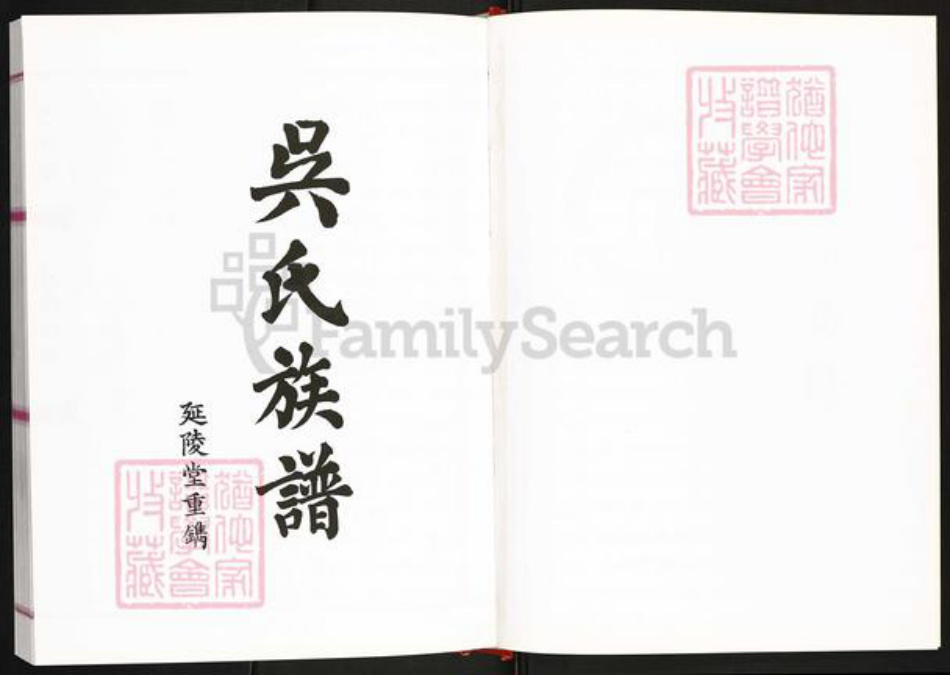 吳氏族譜
延陵堂重鐫
猶他家
譜學會
收藏
猶他家
譜學會
收藏
FamilySearch